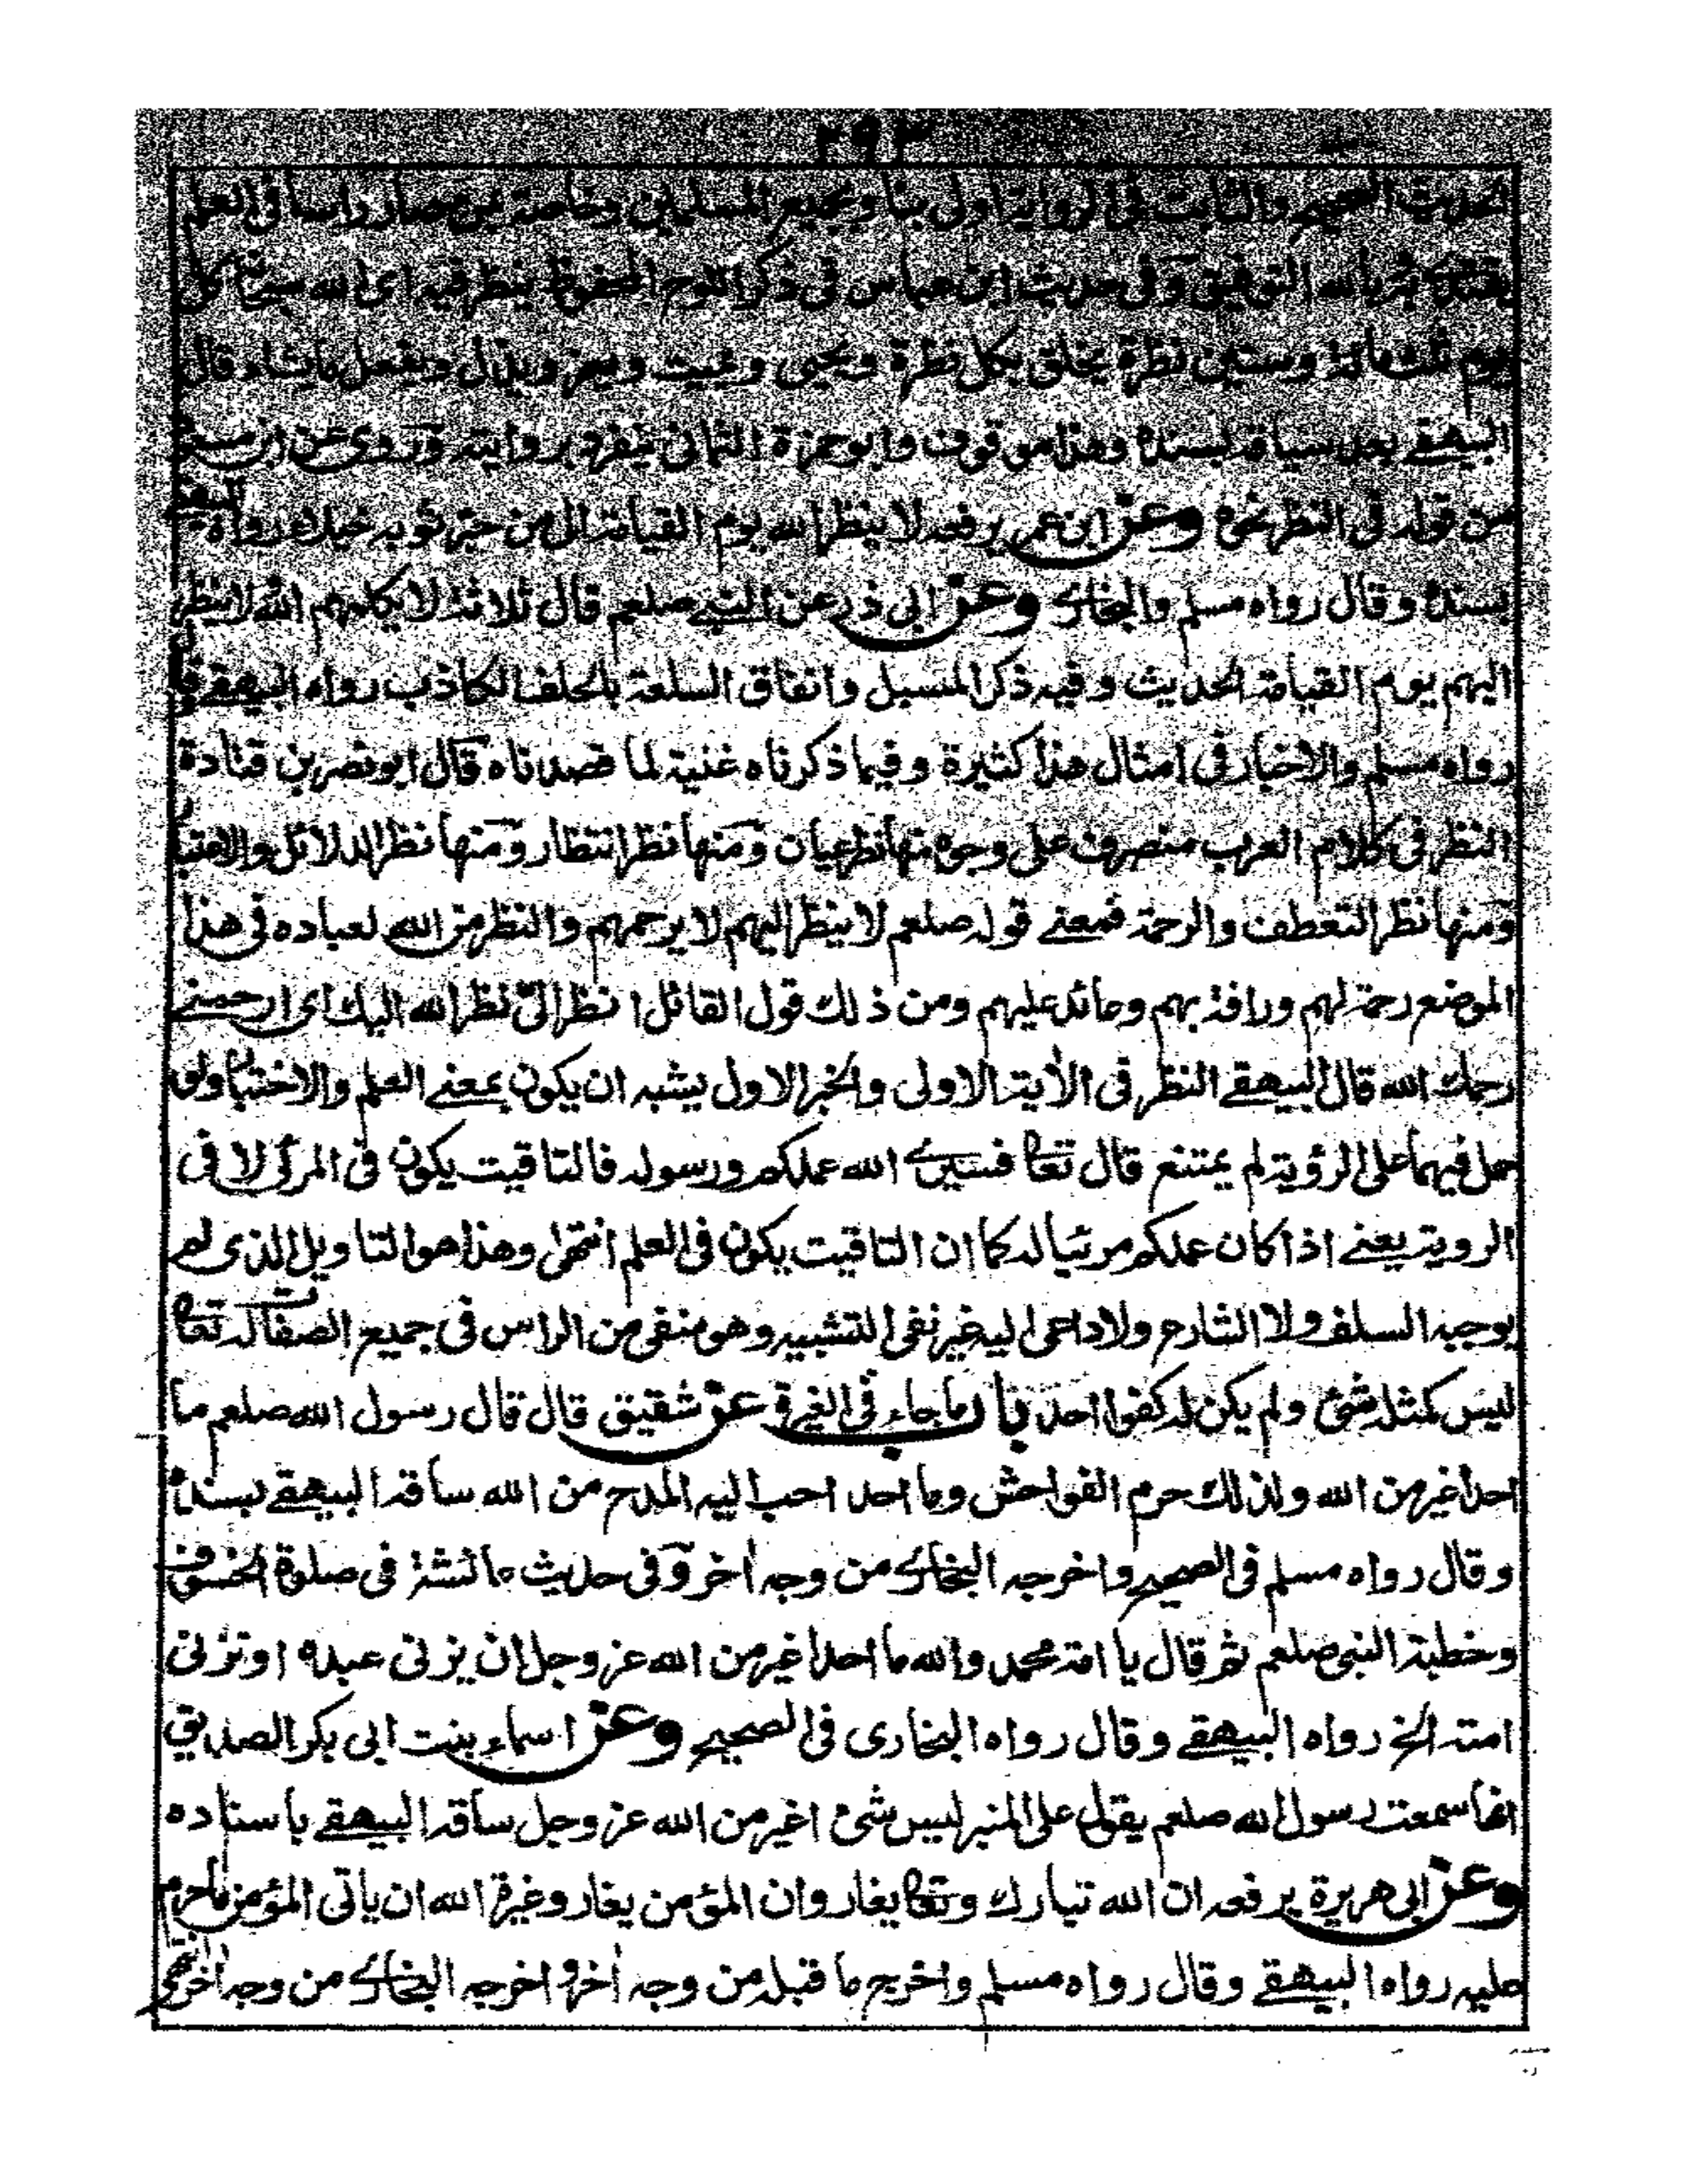 ٢٩٣
الحديث الصحيح والثابت فى الرواية اولى بنا وبجميع المسلمين وخاصة من صار راسا فى العلم
يقتدى به وبالله التوفيق وفى حديث ابن عباس فى ذكر اللوح المحفوظ ينظر فيه اى الله سبحانه كل
يوم ثلث مائة وستين نظرة يخلق بكل نظرة ويحيى ويميت ويعز ويذل ويفعل ما يشاء قال
البيهقے بعد سياقه بسنده وهذا موقوف وابو حمزة الثمالى يتفرد بروايته وروى عن ابن مسعود
من قوله فى النظر نحوه وعن ابن عمر يرفعه لا ينظر الله يوم القيامة الى من جر ثوبه خيلاء رواه البيهقے
بسنده وقال رواه مسلم والبخارے وعن ابى ذر عن النبے صلعم قال ثلاثة لا يكلمهم الله لا ينظر
اليهم يوم القيامة الحديث وفيه ذكر المسبل وانفاق السلعة بالحلف الكاذب رواه البيهقے وقال
رواه مسلم والاخبار فى امثال هذا كثيرة وفيما ذكرناه غنية لما قصدناه قال ابو نصر بن قتادة
النظر فى كلام العرب منصرف على وجوه منها نظر عيان ومنها نظر انتظار ومنها نظر الدلائل والاعتبار
ومنها نظر التعطف والرحمة فمعنے قوله صلعم لا ينظر اليهم لا يرحمهم والنظر من الله لعباده فى هذا
الموضع رحمة لهم ورافة بهم وعائدة عليهم ومن ذلك قول القائل انظر الىّ نظر الله اليك اى ارحمنے
رحمك الله قال البيهقے النظر فى الأية الاولى والخبر الاول يشبه ان يكون بمعنے العلم والاختبار ولو
حمل فيهما على الرؤية لم يمتنع قال تعا فسيرے الله عملكم ورسوله فالتاقيت يكون فى المرئى لا فى
الروية يعنے اذا كان عملكم مرئيا له كما ان التاقيت يكون فى العلم انتهى وهذا هو التاويل الذى لم
يوجبه السلف ولا الشارع ولا داعى اليه غير نفى التشبيه وهو منفى من الراس فى جميع الصفات له تعا
ليس كمثله شئ ولم يكن له كفوا احد باب ما جاء فى الغيرة عن شقيق قال قال رسول الله صلعم ما
احد اغير من الله ولذلك حرم الفواحش وما احد احب اليه المدح من الله ساقه البيهقے بسنده
وقال رواه مسلم فى الصحيح واخرجه البخارے من وجه أخر وفى حديث عائشة فى صلوة الخسوف
وخطبة النبى صلعم ثم قال يا امة محمد والله ما احد اغير من الله عز وجل ان يزنى عبده او تزنى
امته الخ رواه البيهقے وقال رواه البخارى فى الصحيح وعن اسماء بنت ابى بكر الصديق
انها سمعت رسول الله صلعم يقول على المنبر ليس شئ اغير من الله عز وجل ساقه البيهقے باسناده
وعن ابى هريرة يرفعه ان الله تبارك وتعا يغار وان المؤمن يغار وغيرة الله ان ياتى المؤمن ما حرم
عليه رواه البيهقے وقال رواه مسلم واخرج ما قبله من وجه أخر واخرجه البخارے من وجه أخر